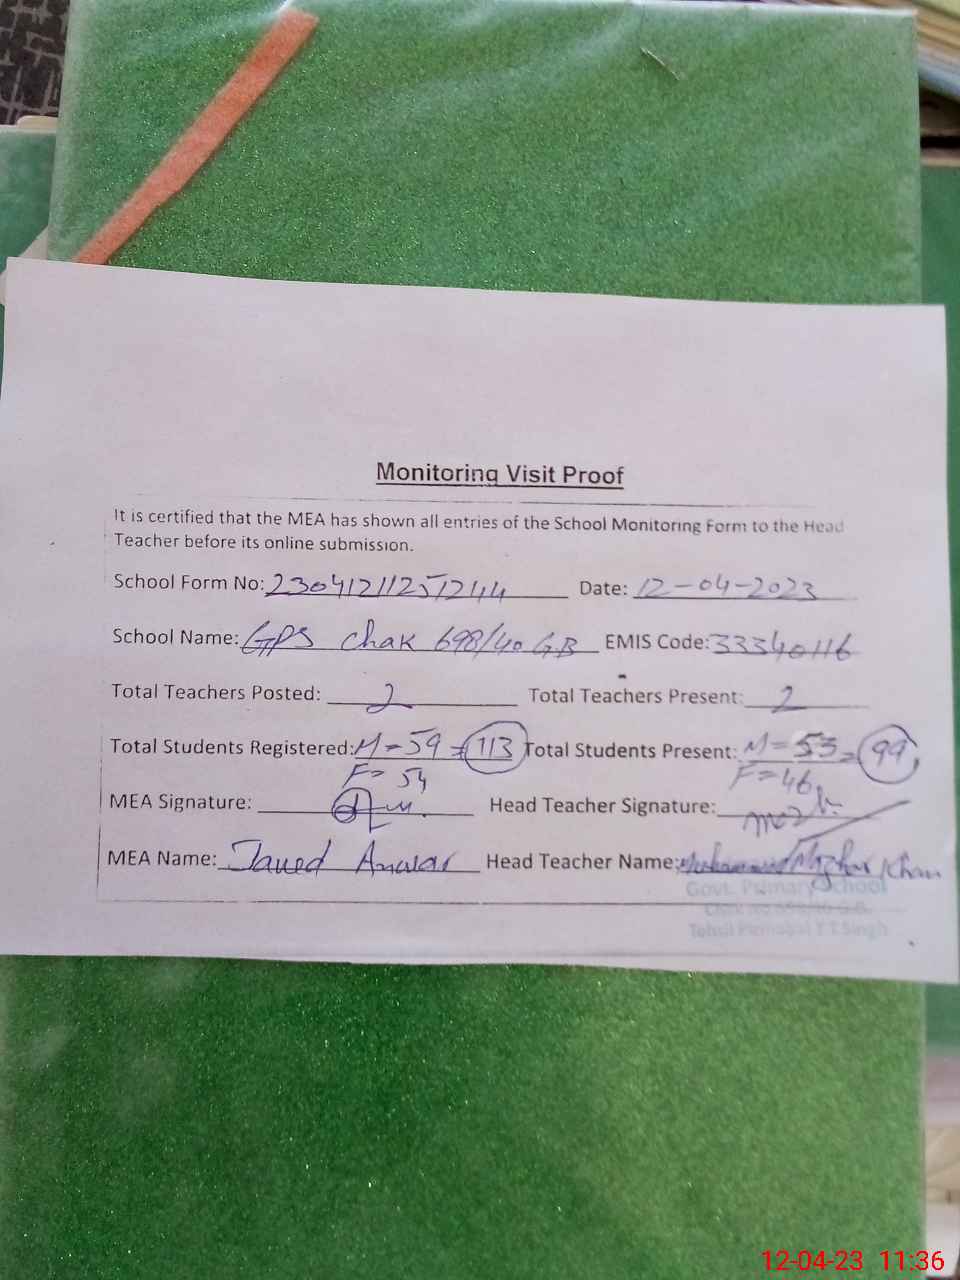 Monitoring Visit Proof
It is certified that the MEA has shown all entries of the School Monitoring Form to the Head
Teacher before its online submission.
School Form No: 23041211251244 Date: 12-04-2023
School Name: GPS Chak 698/40 GB EMIS Code: 33340116
Total Teachers Posted: 2 Total Teachers Present: 2
Total Students Registered: M-59 = 113 Total Students Present: M=53 = 99
F= 54 F=46
MEA Signature: Head Teacher Signature:
MEA Name: Javed Anwar Head Teacher Name: Muhammad Mazhar Khan
Govt. Primary School
Tehsil Pirmahal T.T.Singh
12-04-23 11:36